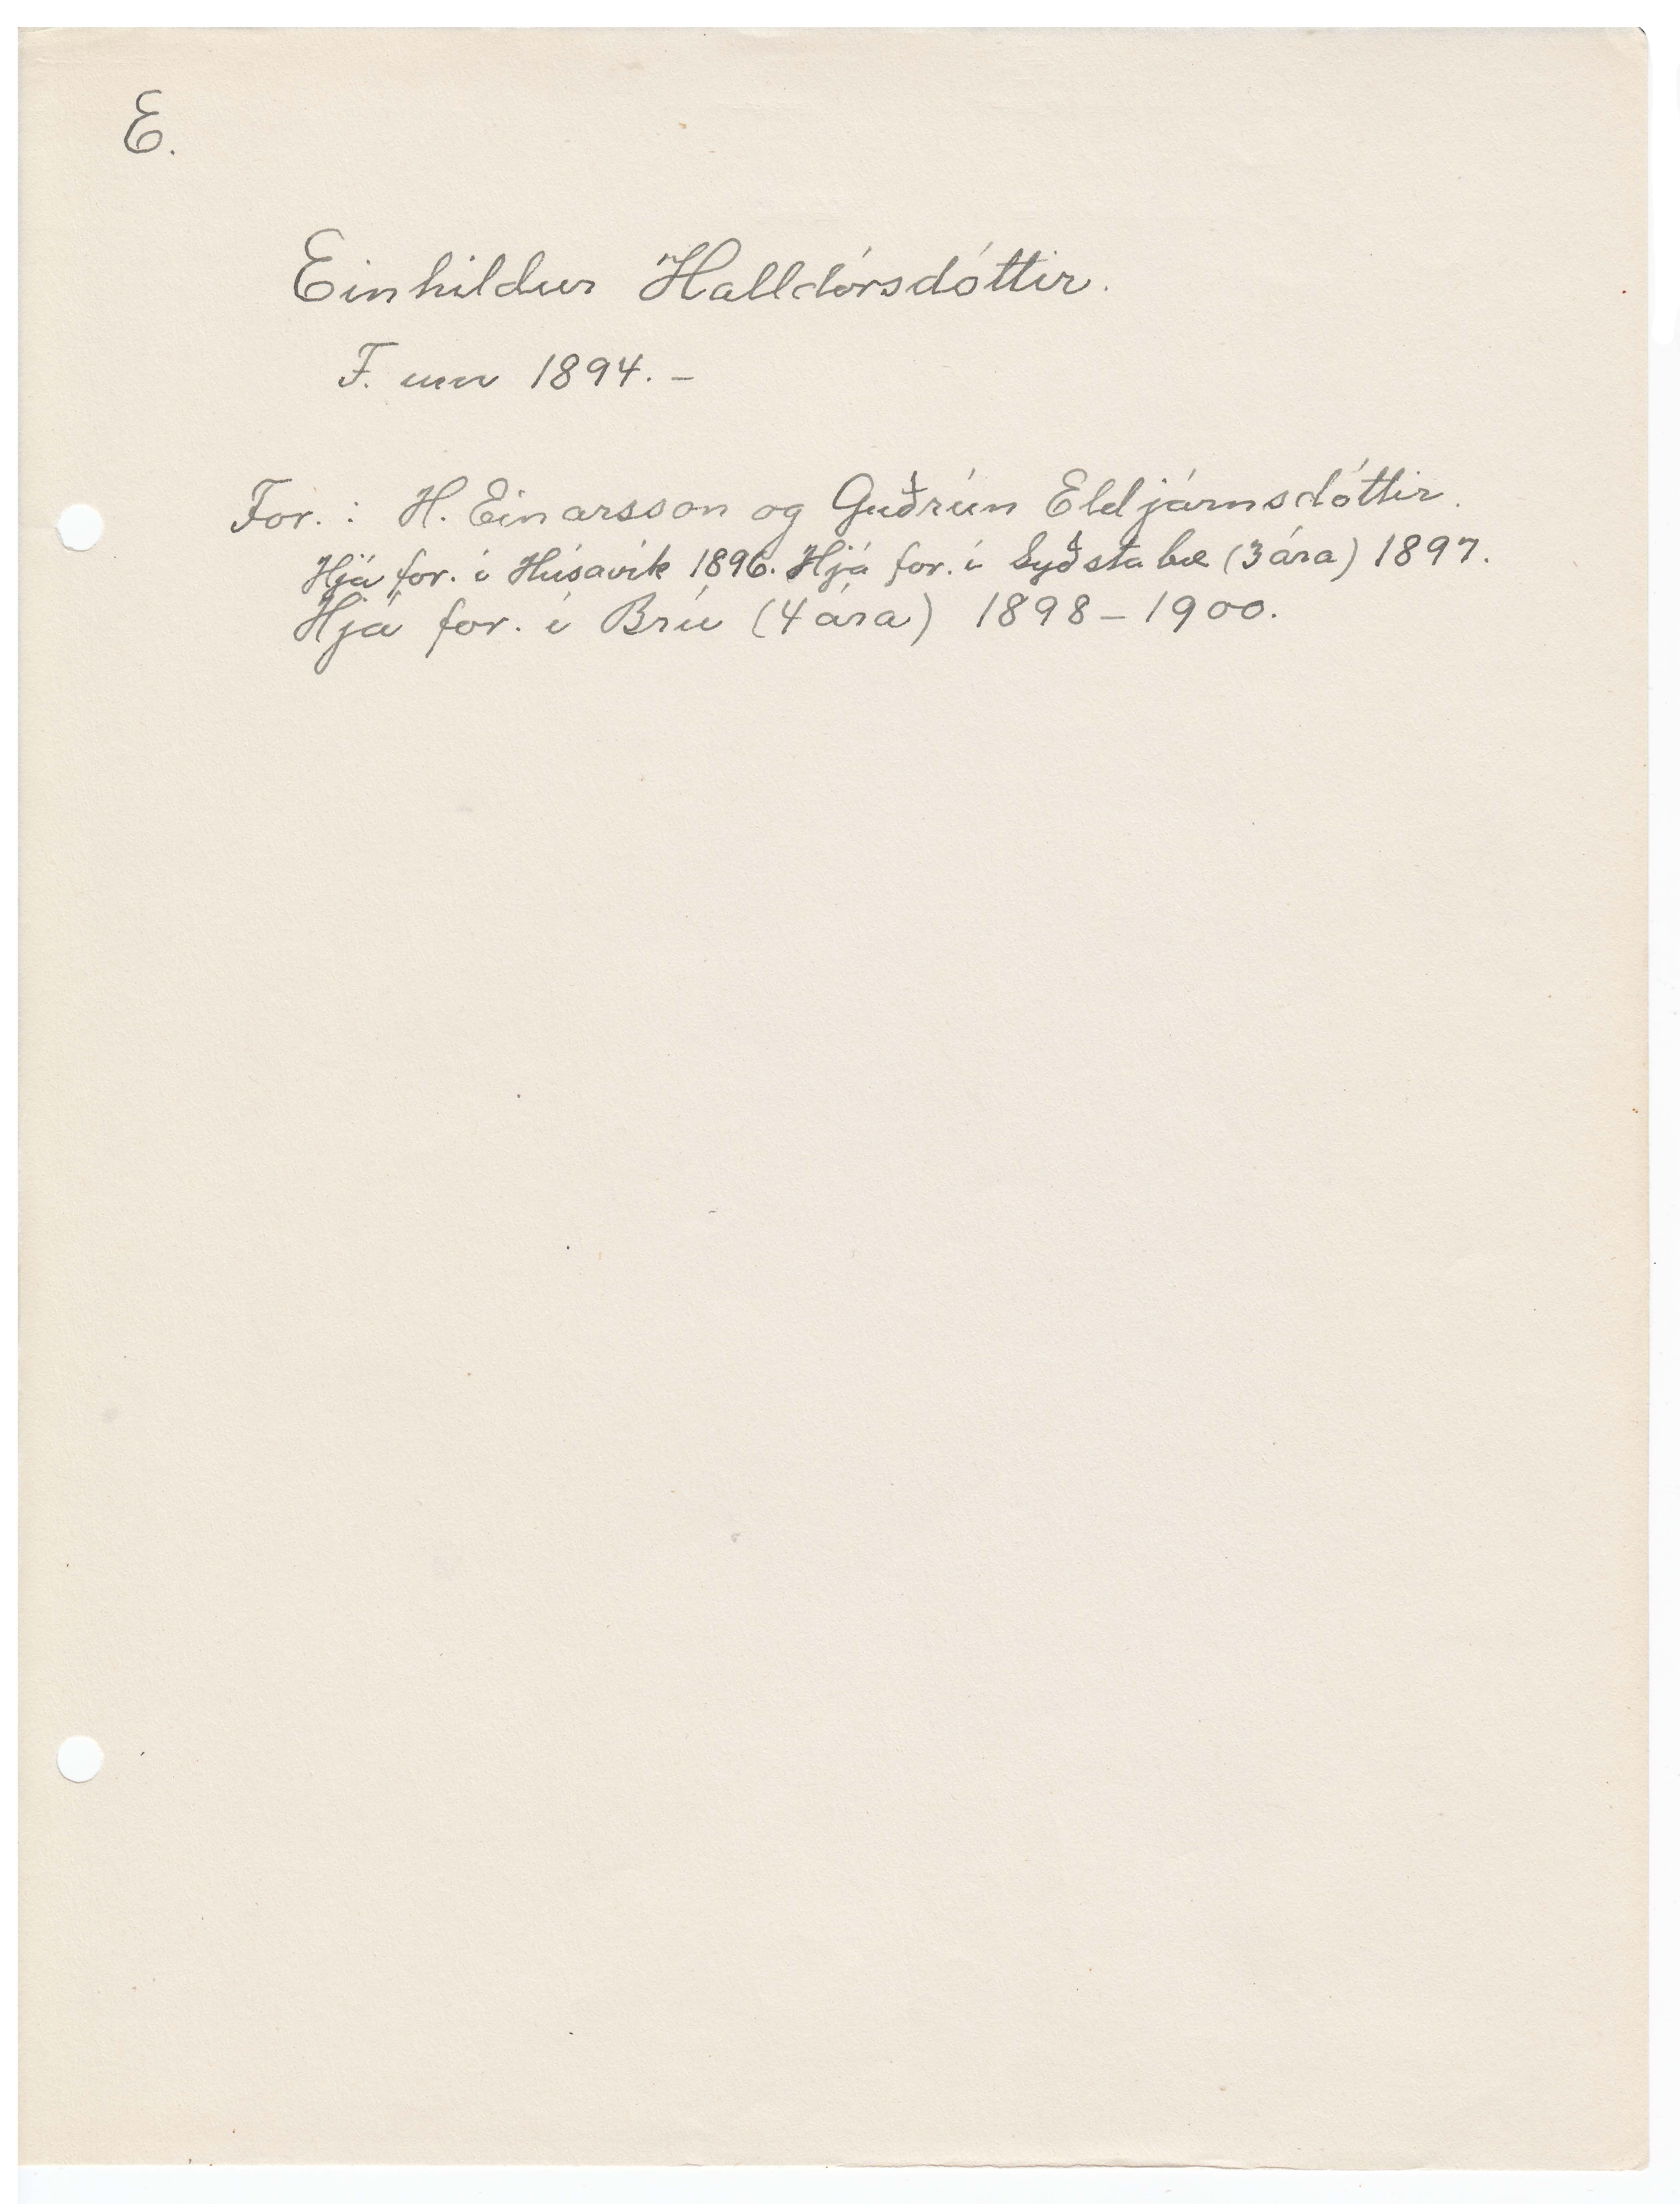 E.
Einhildur Halldórsdóttir.
F. um 1894. -
For. : H. Einarsson og Guðrún Eldjárnsdóttir.
Hjá for. í Húsavík 1896. Hjá for. í Syðstabæ (3 ára) 1897.
Hjá for. í Brú (4 ára) 1898 - 1900.